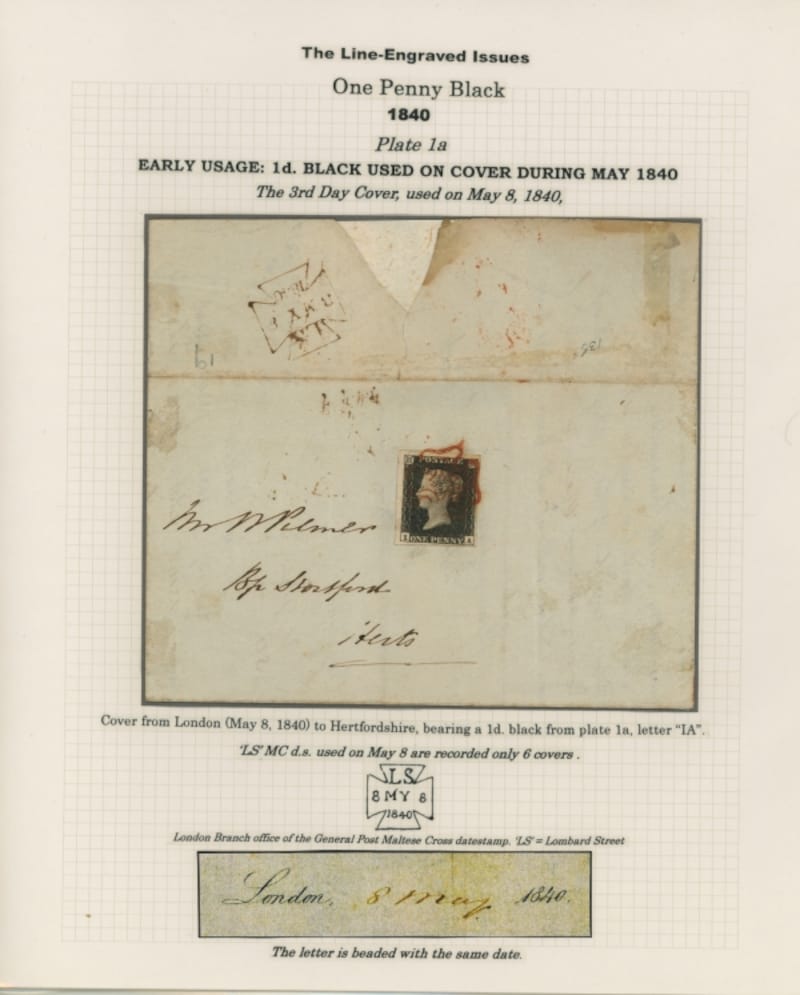 The Line-Engraved Issues
One Penny Black
1840
Plate 1a
EARLY USAGE: 1d. BLACK USED ON COVER DURING MAY 1840
The 3rd Day Cover, used on May 8, 1840,
POSTAGE
I ONE PENNY A
Mr W Pilmer
Bp Stortford
Herts
Cover from London (May 8, 1840) to Hertfordshire, bearing a 1d. black from plate 1a, letter "IA".
'LS' MC d.s. used on May 8 are recorded only 6 covers .
LS
8 MY 8
1840
London Branch office of the General Post Maltese Cross datestamp. 'LS' = Lombard Street
London, 8 May 1840.
The letter is beaded with the same date.